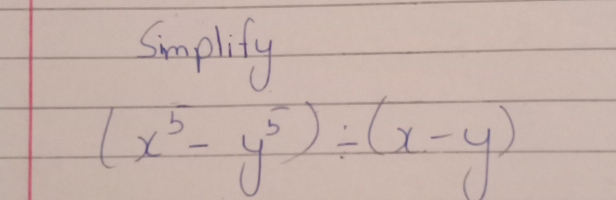 Simplify
(x⁵ - y⁵) ÷ (x - y)